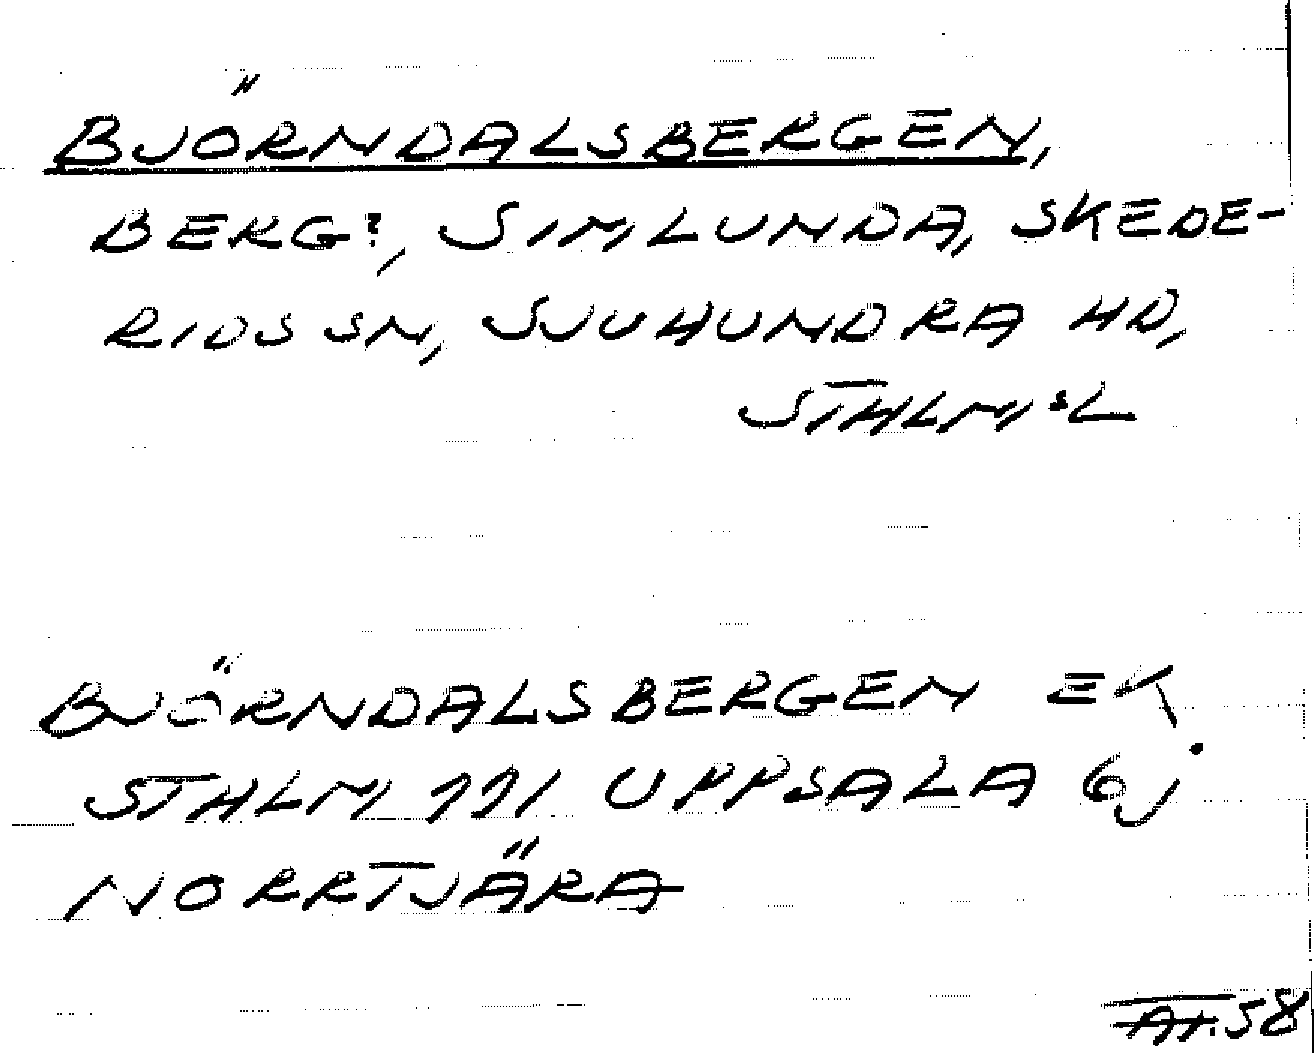 BJÖRNDALSBERGEN,
BERG?, SIMLUNDA, SKEDE-
RIDS SN, SJUHUNDRA HD,
STHLMSL
BJÖRNDALSBERGEN EK
STHLM 111 UPPSALA 6j
NORRTJÄRA
58